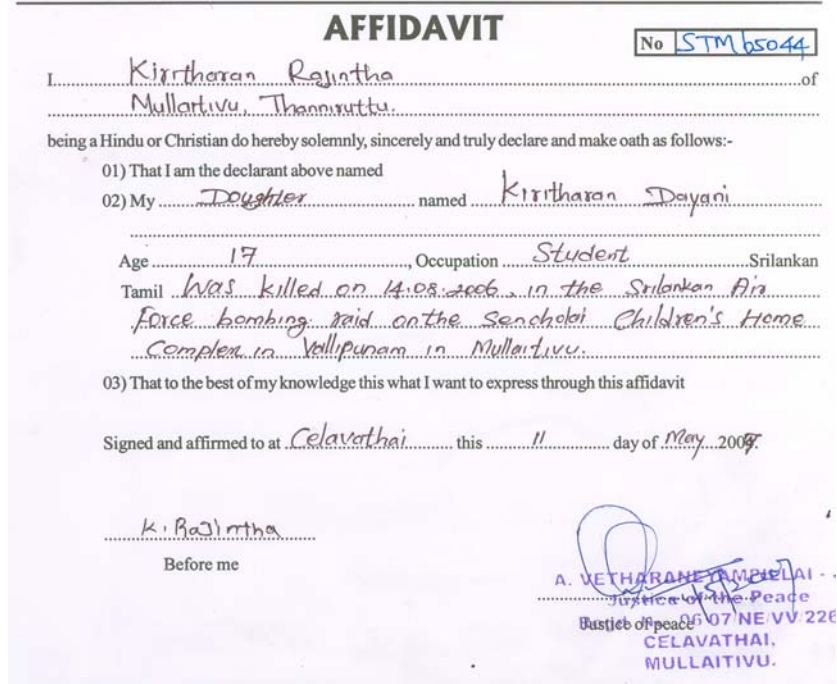 AFFIDAVIT
No STM b5044
I Kirrtharan Rajintha of
Mullaitivu, Thanniruttu.
being a Hindu or Christian do hereby solemnly, sincerely and truly declare and make oath as follows:-
01) That I am the declarant above named
02) My Doughter named Kirritharan Dayani
Age 17, Occupation Student Srilankan
Tamil Was killed on 14.08.2006, in the Srilankan Air
Force bombing raid on the Sencholai Children's Home
Complex in Vallipunam in Mullaitivu.
03) That to the best of my knowledge this what I want to express through this affidavit
Signed and affirmed to at Celavathai this 11 day of May 2007.
K. Rajintha
Before me
A. VETHARANEYAMPILLAI
Justice of the Peace
Justice of peace
06 07/NE/VV/226
CELAVATHAI,
MULLAITIVU.